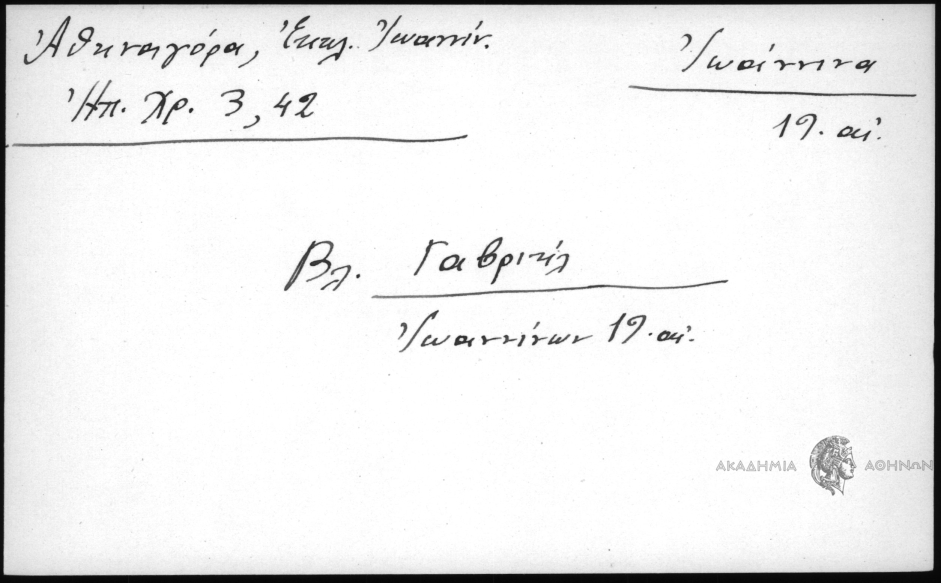 Ἀθηναγόρα, Ἐκκλ. Ἰωαννίν.
Ἠπ. Χρ. 3, 42
Ἰωάννινα
19. αἰ.
Βλ. Γαβριήλ
Ἰωαννίνων 19. αἰ.
ΑΚΑΔΗΜΙΑ ΑΘΗΝΩΝ